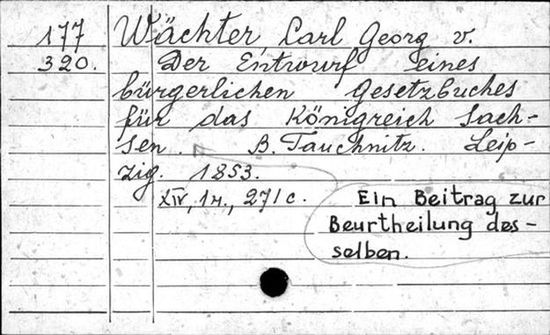 177 Wächter Carl Georg v.
320. Der Entwurf eines
bürgerlichen Gesetzbuches
für das Königreich Sach-
sen. B. Tauchnitz. Leip-
zig. 1853.
XIV, 1л., 271 с.
Ein Beitrag zur
Beurtheilung des-
selben.